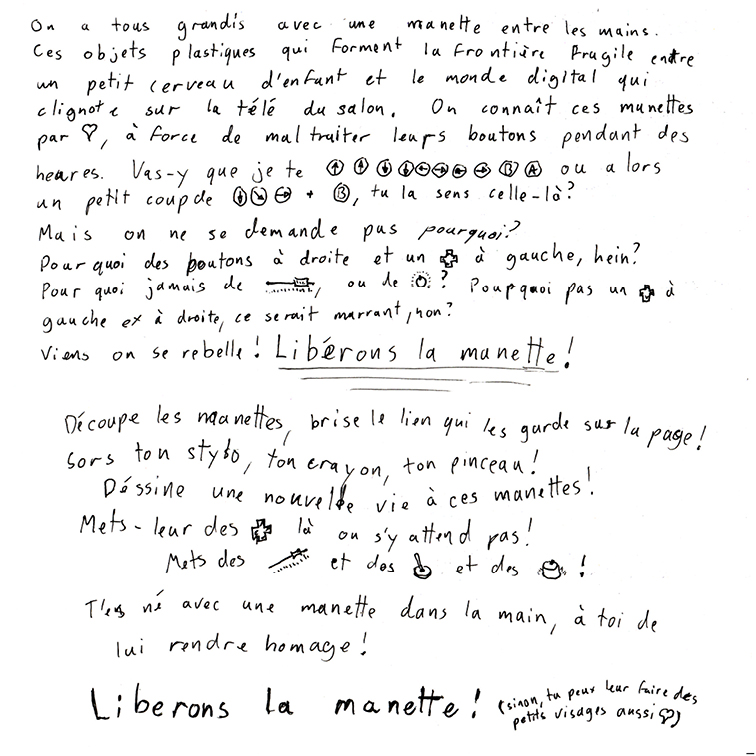 On a tous grandis avec une manette entre les mains.
Ces objets plastiques qui forment la frontière fragile entre
un petit cerveau d'enfant et le monde digital qui
clignote sur la télé du salon. On connaît ces manettes
par ♡, à force de maltraiter leurs boutons pendant des
heures. Vas-y que je te ↑ ↑ ↓ ↓ ← → ← → B A ou alors
un petit coup de ↓ ↘ → + B, tu la sens celle-là?
Mais on ne se demande pas pourquoi?
Pourquoi des boutons à droite et un ✚ à gauche, hein?
Pourquoi jamais de , ou de ? Pourquoi pas un ✚ à
gauche et à droite, ce serait marrant, non?
Viens on se rebelle! Libérons la manette!
Découpe les manettes, brise le lien qui les garde sur la page!
Sors ton stylo, ton crayon, ton pinceau!
Déssine une nouvelle vie à ces manettes!
Mets-leur des ✚ là ou s'y attend pas!
Mets des et des et des !
T'es né avec une manette dans la main, à toi de
lui rendre homage!
Liberons la manette! (sinon, tu peux leur faire des
petits visages aussi ♡)